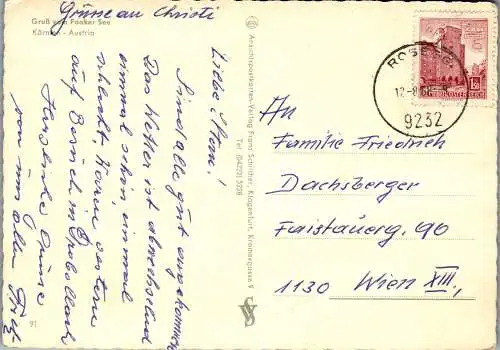 Grüße an Christl
Gruß vom Faaker See
Kärnten - Austria
Liebe
Sind alle gut angekommen
Das Wetter ist abwechselnd
einmal schön einmal
schlecht. Waren gestern
auf Besuch in
Herzliche Grüße
von uns allen
91
Ansichtspostkarten-Verlag Franz Schilcher, Klagenfurt, Kramergasse 9
Tel. (04222) 5228
ROSEGG
12.-8.68.-8
9232
REPUBLIK ÖSTERREICH
An
Familie Friedrich
Dachsberger
Faistauerg. 96
1130 Wien XIII.,